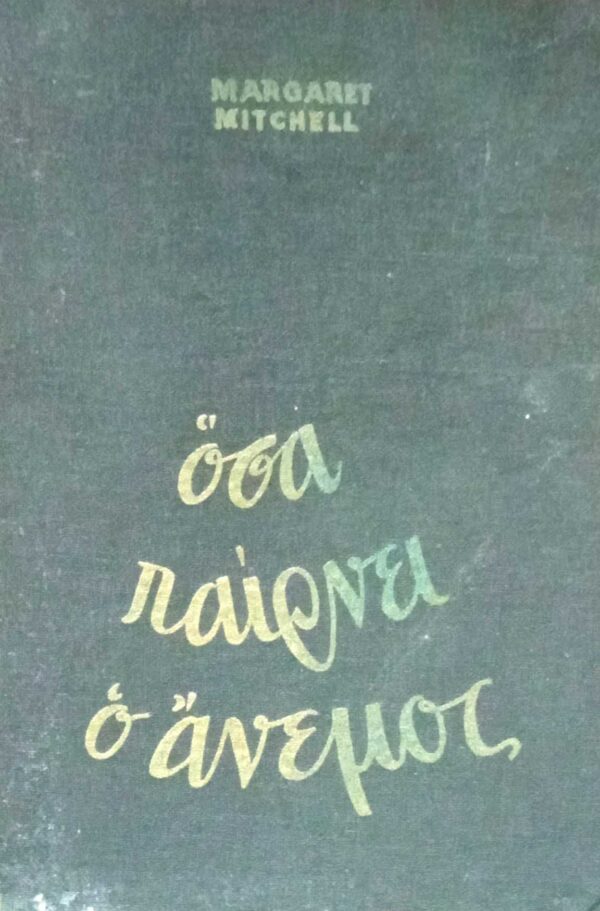 MARGARET
MITCHELL
ὅσα
παίρνει
ὁ ἄνεμος